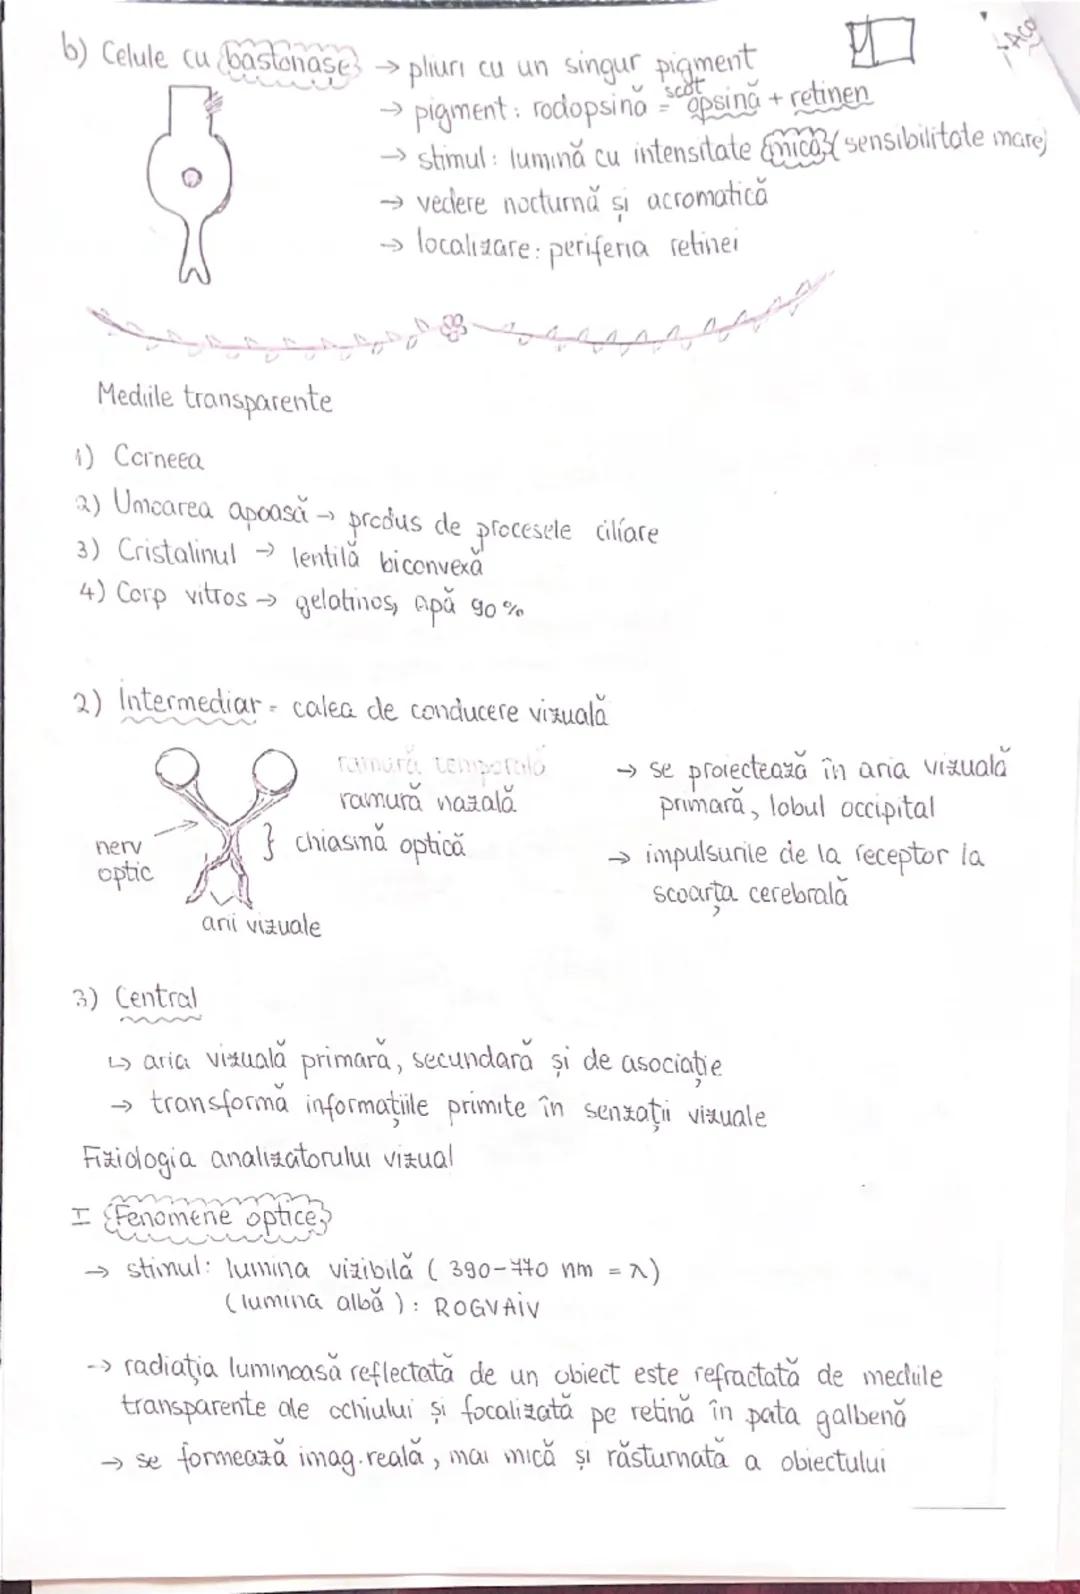 b) Celule cu bastonașe → pliuri cu un singur pigment
→ pigment: rodopsină = scotopsină + retinen
→ stimul: lumină cu intensitate mică (sensibilitate mare)
→ vedere nocturnă și acromatică
→ localizare: periferia retinei
Mediile transparente
1) Corneea
2) Umoarea apoasă → produs de procesele ciliare
3) Cristalinul → lentilă biconvexă
4) Corp vitros → gelatinos, apă 90%
2) Intermediar = calea de conducere vizuală
ramură temporală
ramură nazală
} chiasmă optică
nerv
optic
arii vizuale
→ se proiectează în aria vizuală
primară, lobul occipital
→ impulsurile de la receptor la
scoarța cerebrală
3) Central
↳ aria vizuală primară, secundară și de asociație
→ transformă informațiile primite în senzații vizuale
Fiziologia analizatorului vizual
I Fenomene optice
→ stimul: lumina vizibilă (390-770 nm = λ)
(lumina albă): ROGVAIV
→ radiația luminoasă reflectată de un obiect este refractată de mediile
transparente ale ochiului și focalizată pe retină în pata galbenă
→ se formează imag. reală, mai mică și răsturnată a obiectului